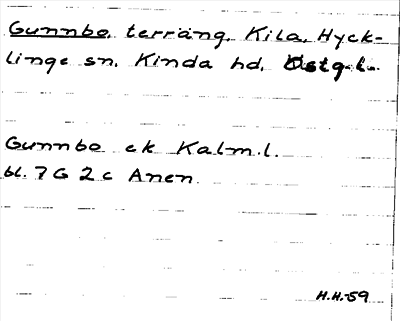 Gunnbo, terräng, Kila, Hyck-
linge sn, Kinda hd, Östg.l.
Gunnbo ek Kalm.l.
bl. 7 G 2 c Anen
H.H.-59